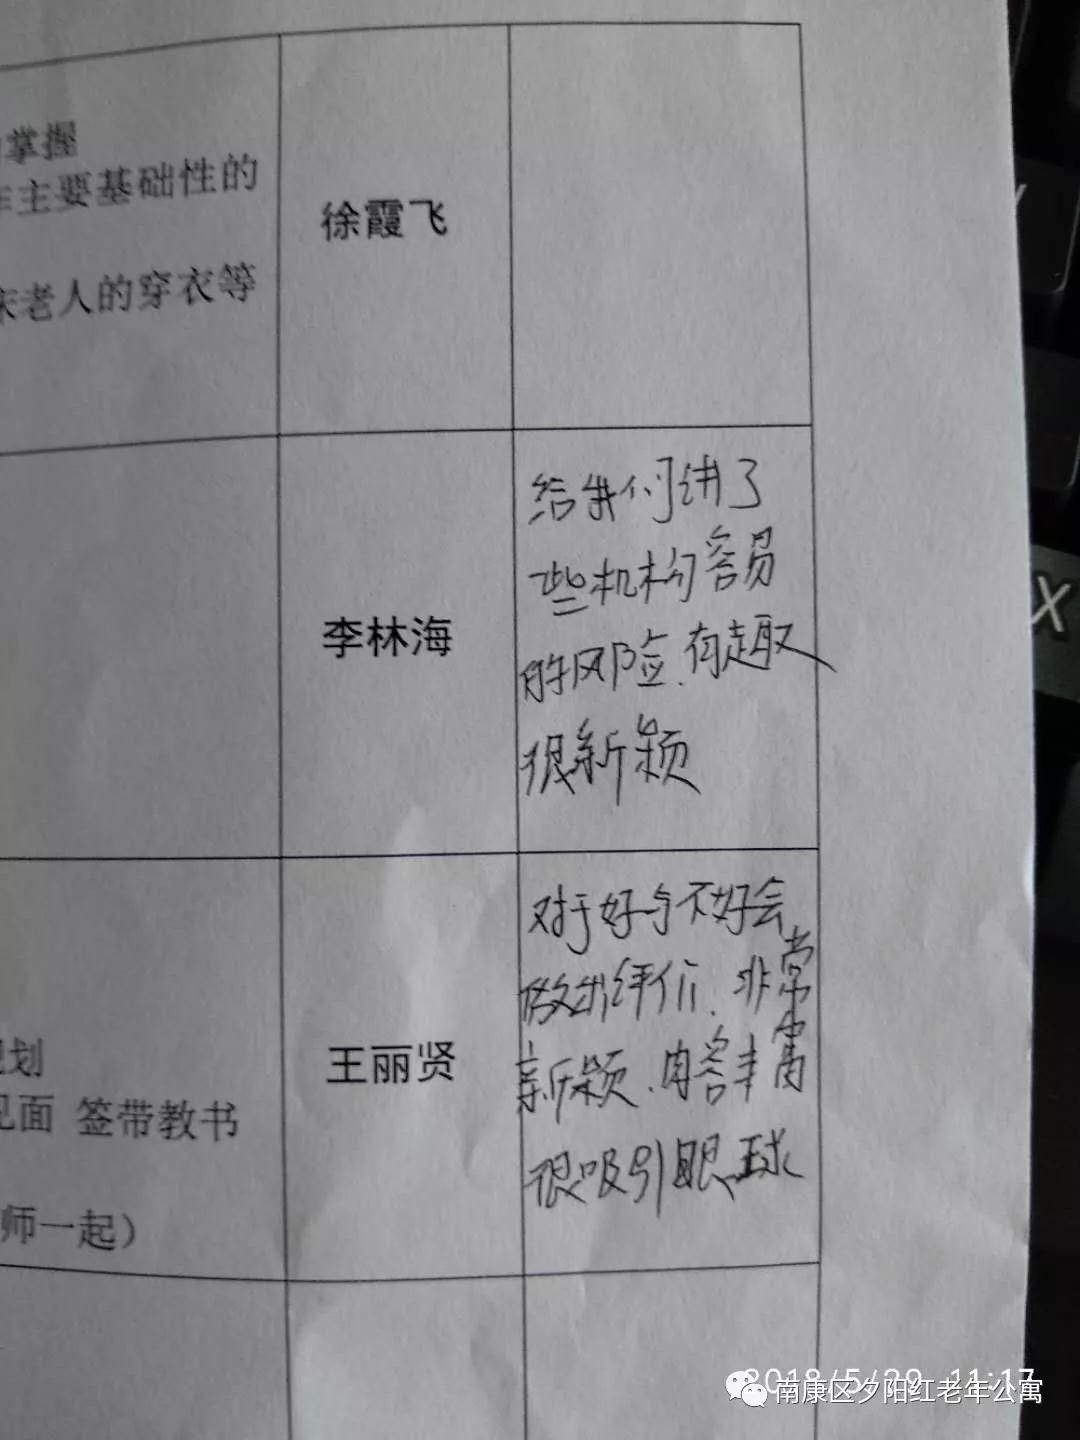 掌握
主要基础性的
老人的穿衣等
徐霞飞
李林海
给我们讲了
些机构容易
的风险.有趣
很新颖
划
见面 签带教书
师一起）
王丽贤
对于好与不好会
做出评价.非常
新颖.内容丰富
很吸引眼球
2018/5/29 11:17
南康区夕阳红老年公寓
X